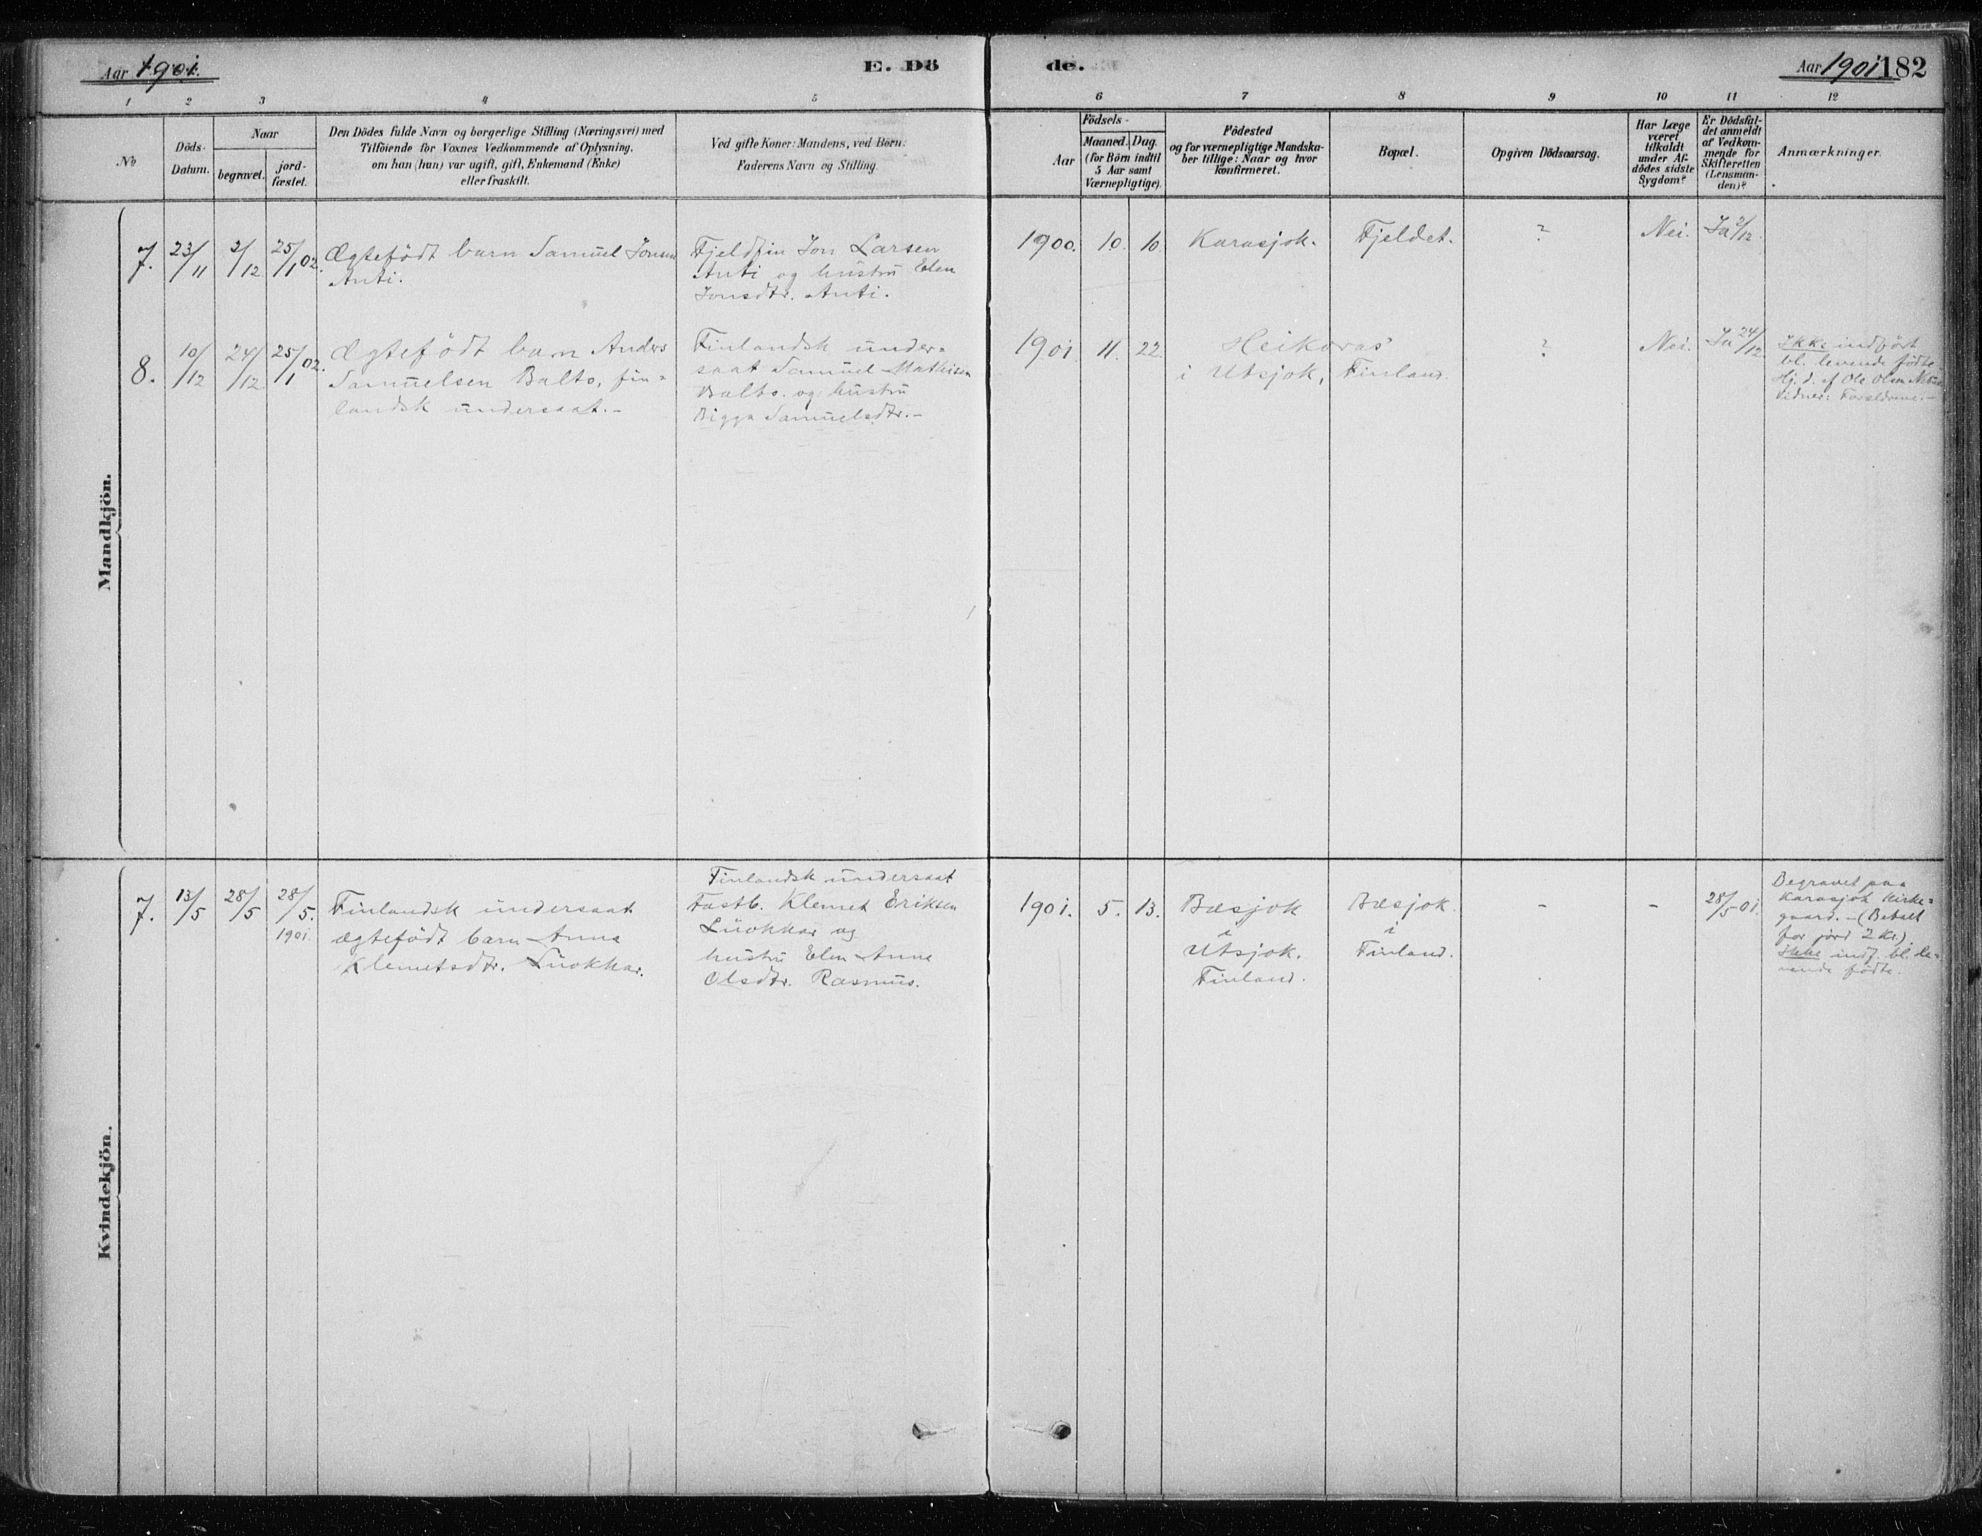 Aar 1901.
E. Dö
de.
Aar 1901
182
1
2
3
4
5
6
7
8
9
10
11
12
No
Döds-
Datum.
Naar
begravet.
jord-
fæstet.
Den Dödes fulde Navn og borgerlige Stilling (Næringsvei) med
Tilföiende for Voxnes Vedkommende af Oplysning,
om han (hun) var ugift, gift, Enkemand (Enke)
eller fraskilt.
Ved gifte Koner: Mandens, ved Børn:
Faderens Navn og Stilling.
Födsels-
Aar
Maaned.
Dag.
(for Börn indtil
5 Aar samt
Værnepligtige).
Födested
og for værnepligtige Mandska-
ber tillige: Naar og hvor
konfirmeret.
Bopæl.
Opgiven Dödsaarsag.
Har Læge
været
tilkaldt
under Af-
dödes sidste
Sygdom?
Er Dödsfal-
det anmeldt
af Vedkom-
mende for
Skifteretten
(Lensman-
den)?
Anmærkninger.
Mandkjön.
7.
23/11
2/12
25/1 02.
Ægtefödt barn Samuel Jonsen
Anti.
Fjeldfin Jon Larsen
Anti og hustru Elen
Jonsdtr. Anti.
1900.
10.
10.
Karasjok.
Fjeldet.
?
Nei.
Ja 2/12.
8.
10/12
24/12
25/1 02.
Ægtefödt barn Anders
Samuelsen Balto, fin-
landsk undersaat.-
Finlandsk under-
saat Samuel Mathisen
Balto. og hustru
Bigga Samuelsdtr.-
1901
11.
22.
Heikoras
i Utsjok, Finland.
?
Nei.
Ja 24/12.
Ikke indfört
bl. levende födte
Hj. d. af Ole Olsen
Vidner: Forældrene.-
Kvindekjön.
7.
13/5
28/5
28/5.
1901.
Finlandsk undersaat
ægtefödt barn Anna
Klemetsdtr. Luokkar.
Finlandsk undersaat
Fastb. Klemet Eriksen
Luokkar og
hustru Elen Anna
Olsdtr. Rasmus.
1901.
5.
13.
Bæsjok
i
Utsjok.
Finland.
Bæsjok.
i
Finland.
-
-
28/5 01.
Begravet paa
Karasjok Kirke-
gaard.-(Betalt
for jord 2 Kr.)
Ikke indf. bl. le-
vende födte.